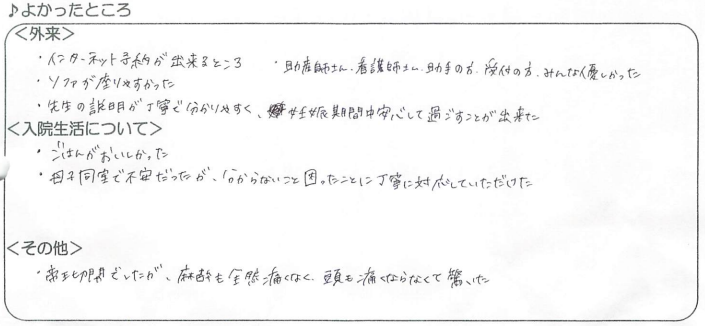 ♪よかったところ
＜外来＞
・インターネット予約が出来るところ ・助産師さん、看護師さん、助手の方、受付の方、みんな優しかった
・ソファが座りやすかった
・先生の説明が丁寧で分かりやすく、妊娠期間中安心して過ごすことが出来た
＜入院生活について＞
・ごはんがおいしかった
・母子同室で不安だったが、分からないこと困ったことに丁寧に対応していただけた
＜その他＞
・帝王切開でしたが、麻酔も全然痛くなく、頭も痛くならなくて驚いた